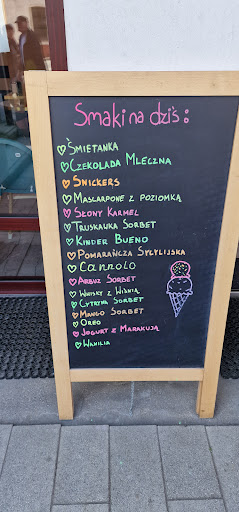 Smaki na dziś:
Śmietanka
Czekolada Mleczna
Snickers
Mascarpone z poziomką
Słony Karmel
Truskawka Sorbet
Kinder Bueno
Pomarańcza Sycylijska
Cannolo
Arbuz Sorbet
Whisky z Wiśnią
Cytryna Sorbet
Mango Sorbet
Oreo
Jogurt z Marakują
Wanilia